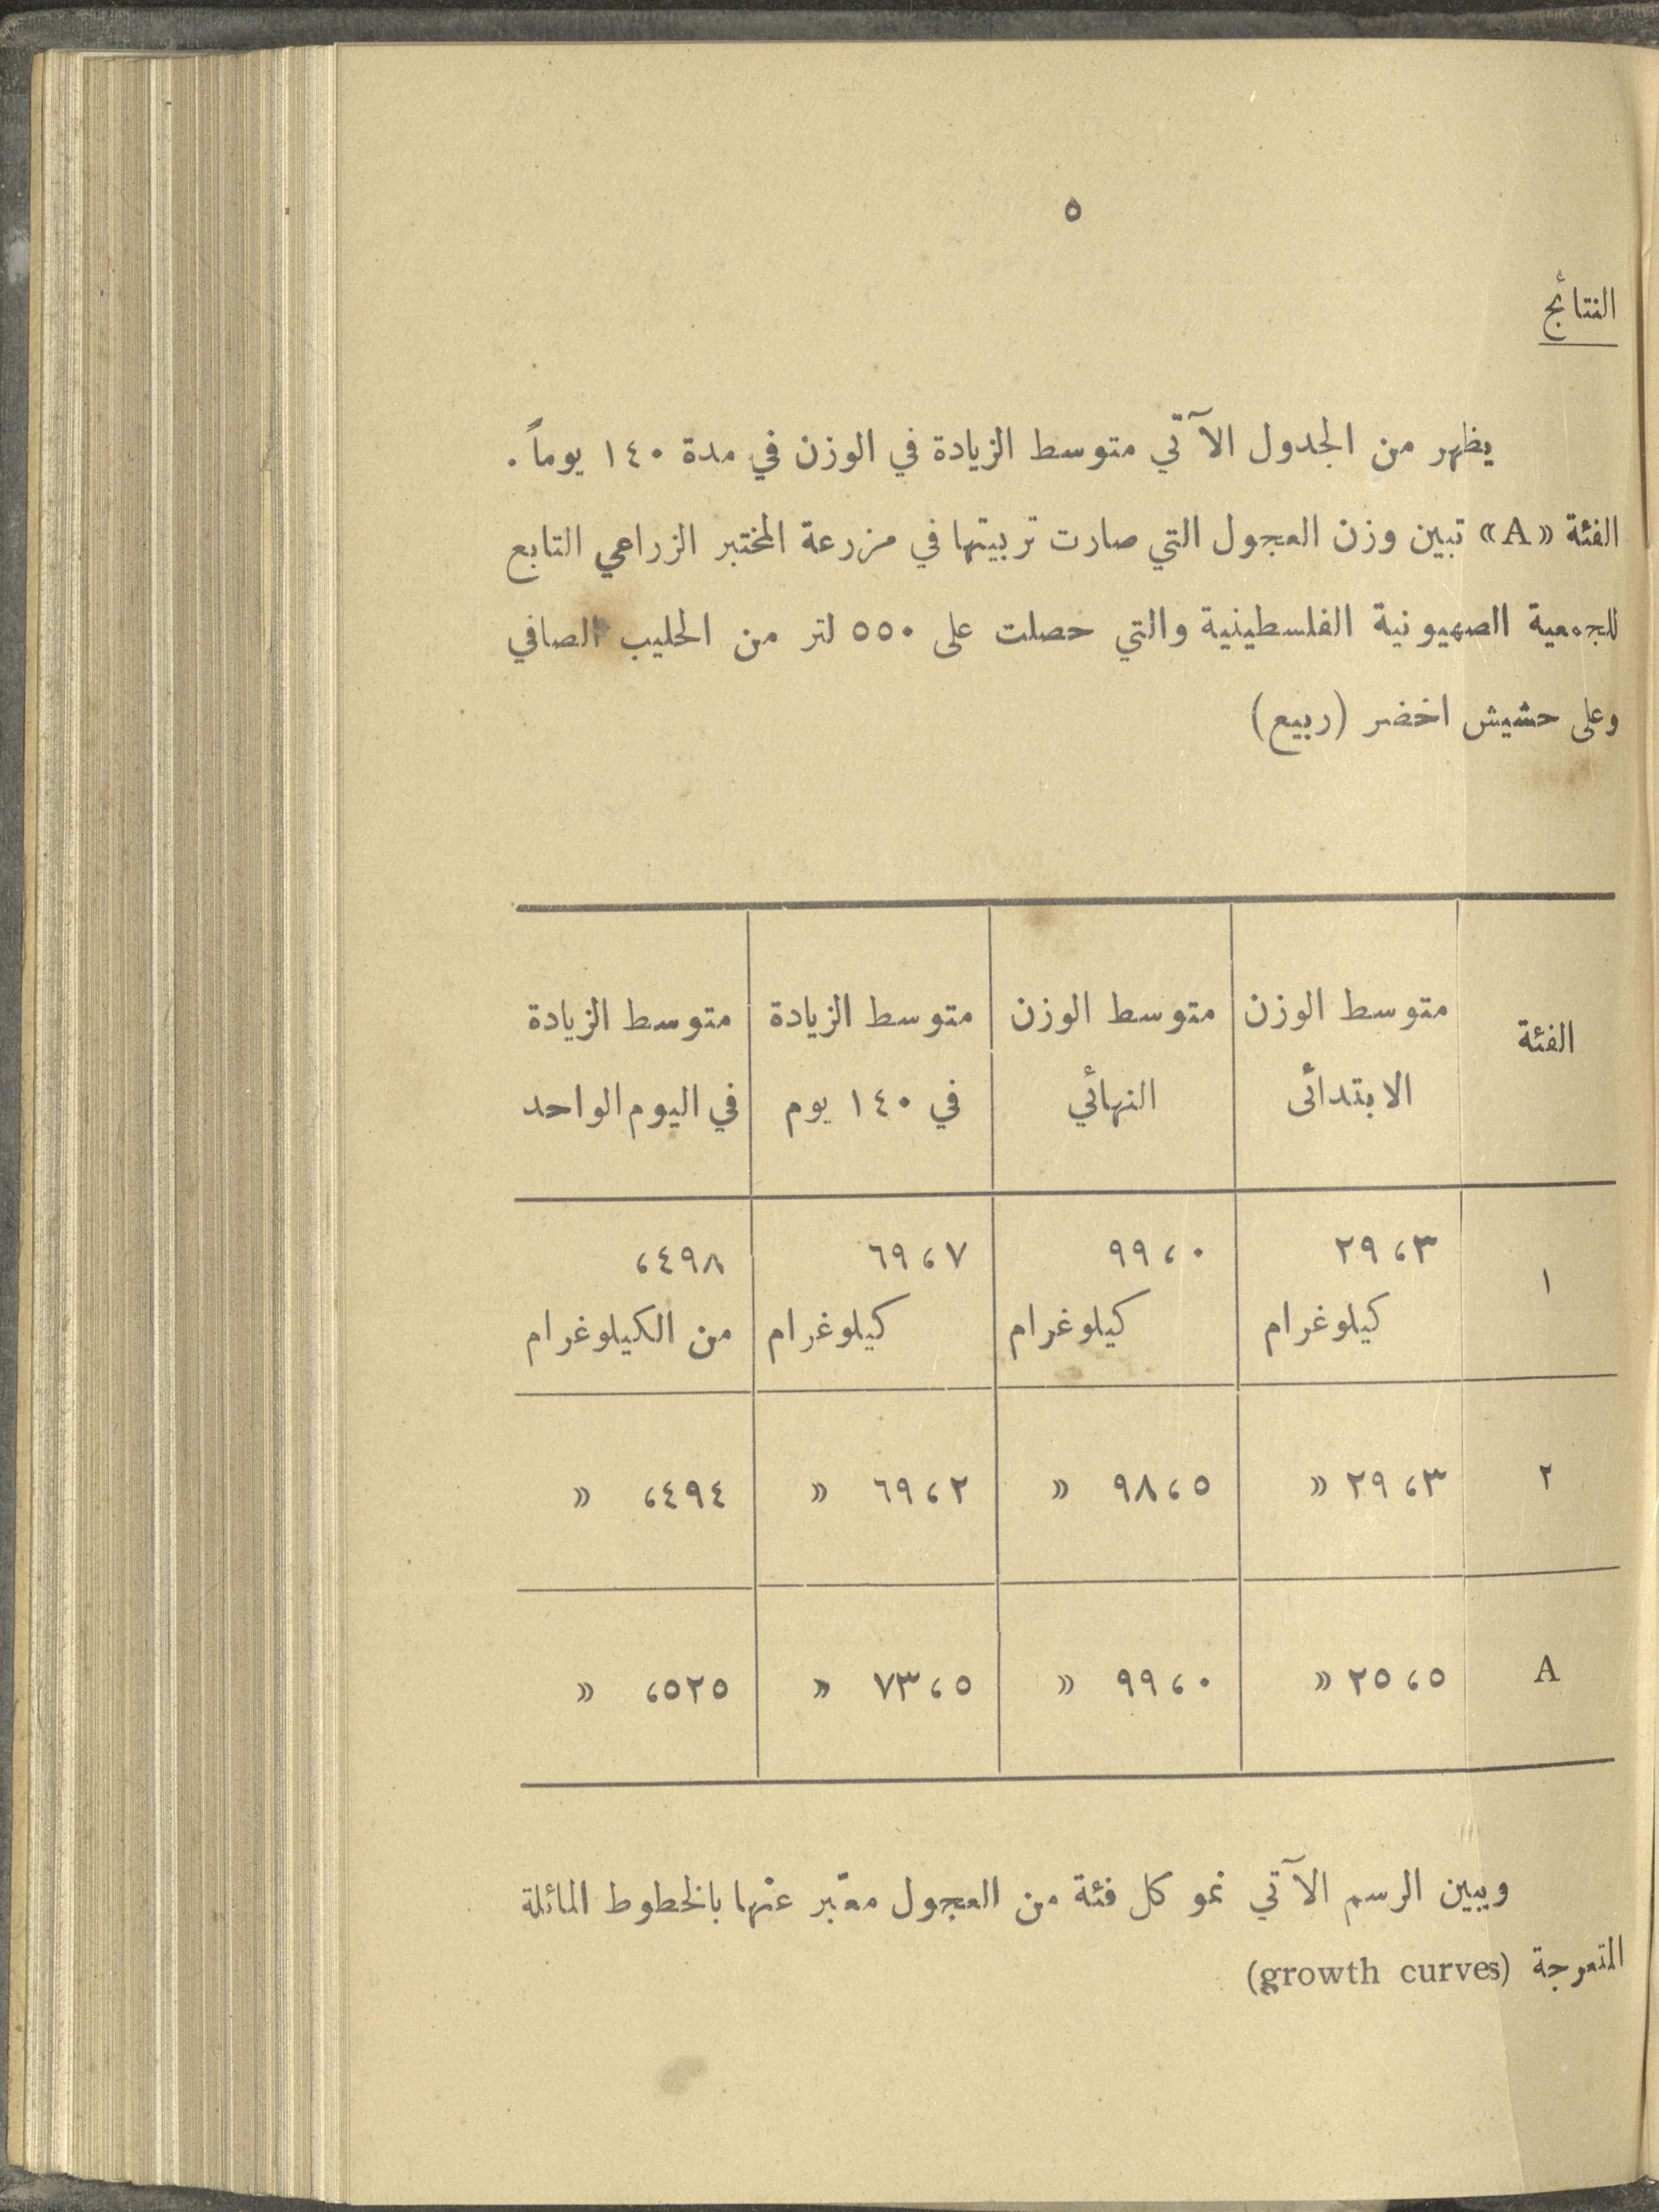 ٥
النتائج
يظهر من الجدول الآتي متوسط الزيادة في الوزن في مدة ١٤٠ يوماً.
الفئة «A» تبين وزن العجول التي صارت تربيتها في مزرعة المختبر الزراعي التابع
للجمعية الصهيونية الفلسطينية والتي حصلت على ٥٥٠ لتر من الحليب الصافي
وعلى حشيش اخضر (ربيع)
الفئة متوسط الوزن متوسط الوزن متوسط الزيادة متوسط الزيادة
الابتدائى النهائي في ١٤٠ يوم في اليوم الواحد
١ ٢٩،٣ ٩٩،٠ ٦٩،٧ ،٤٩٨
كيلوغرام كيلوغرام كيلوغرام من الكيلوغرام
٢ ٢٩،٣ » ٩٨،٥ » ٦٩،٢ » ،٤٩٤ »
A ٢٥،٥ » ٩٩،٠ » ٧٣،٥ » ،٥٢٥ »
ويبين الرسم الآتي نمو كل فئة من العجول معبّر عنها بالخطوط المائلة
المتعرجة (growth curves)